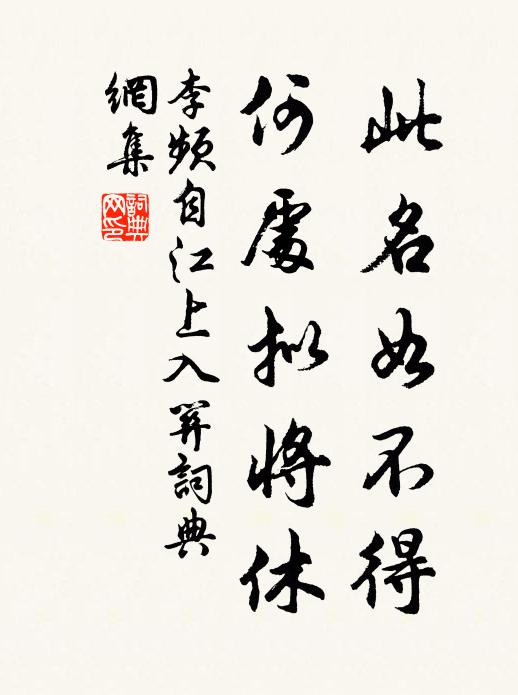 此名如不得
何處擬將休
李頻自江上入關詞典
網集
詞典
网印